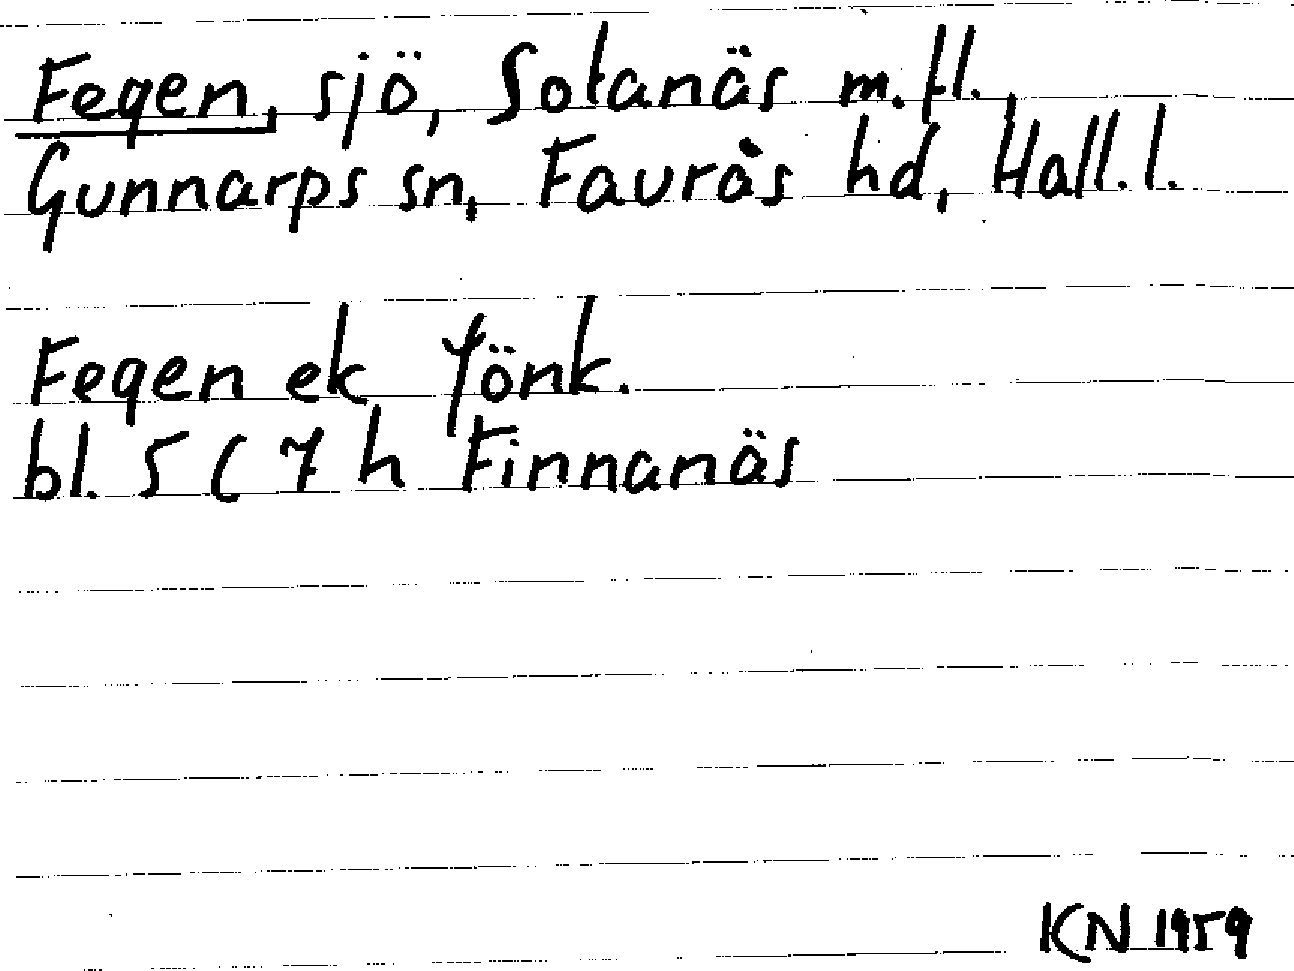 Fegen, sjö, Sotanäs m.fl.,
Gunnarps sn, Faurås hd, Hall.l.
Fegen ek Jönk.
bl. 5 C 7 h Finnanäs
KN 1959